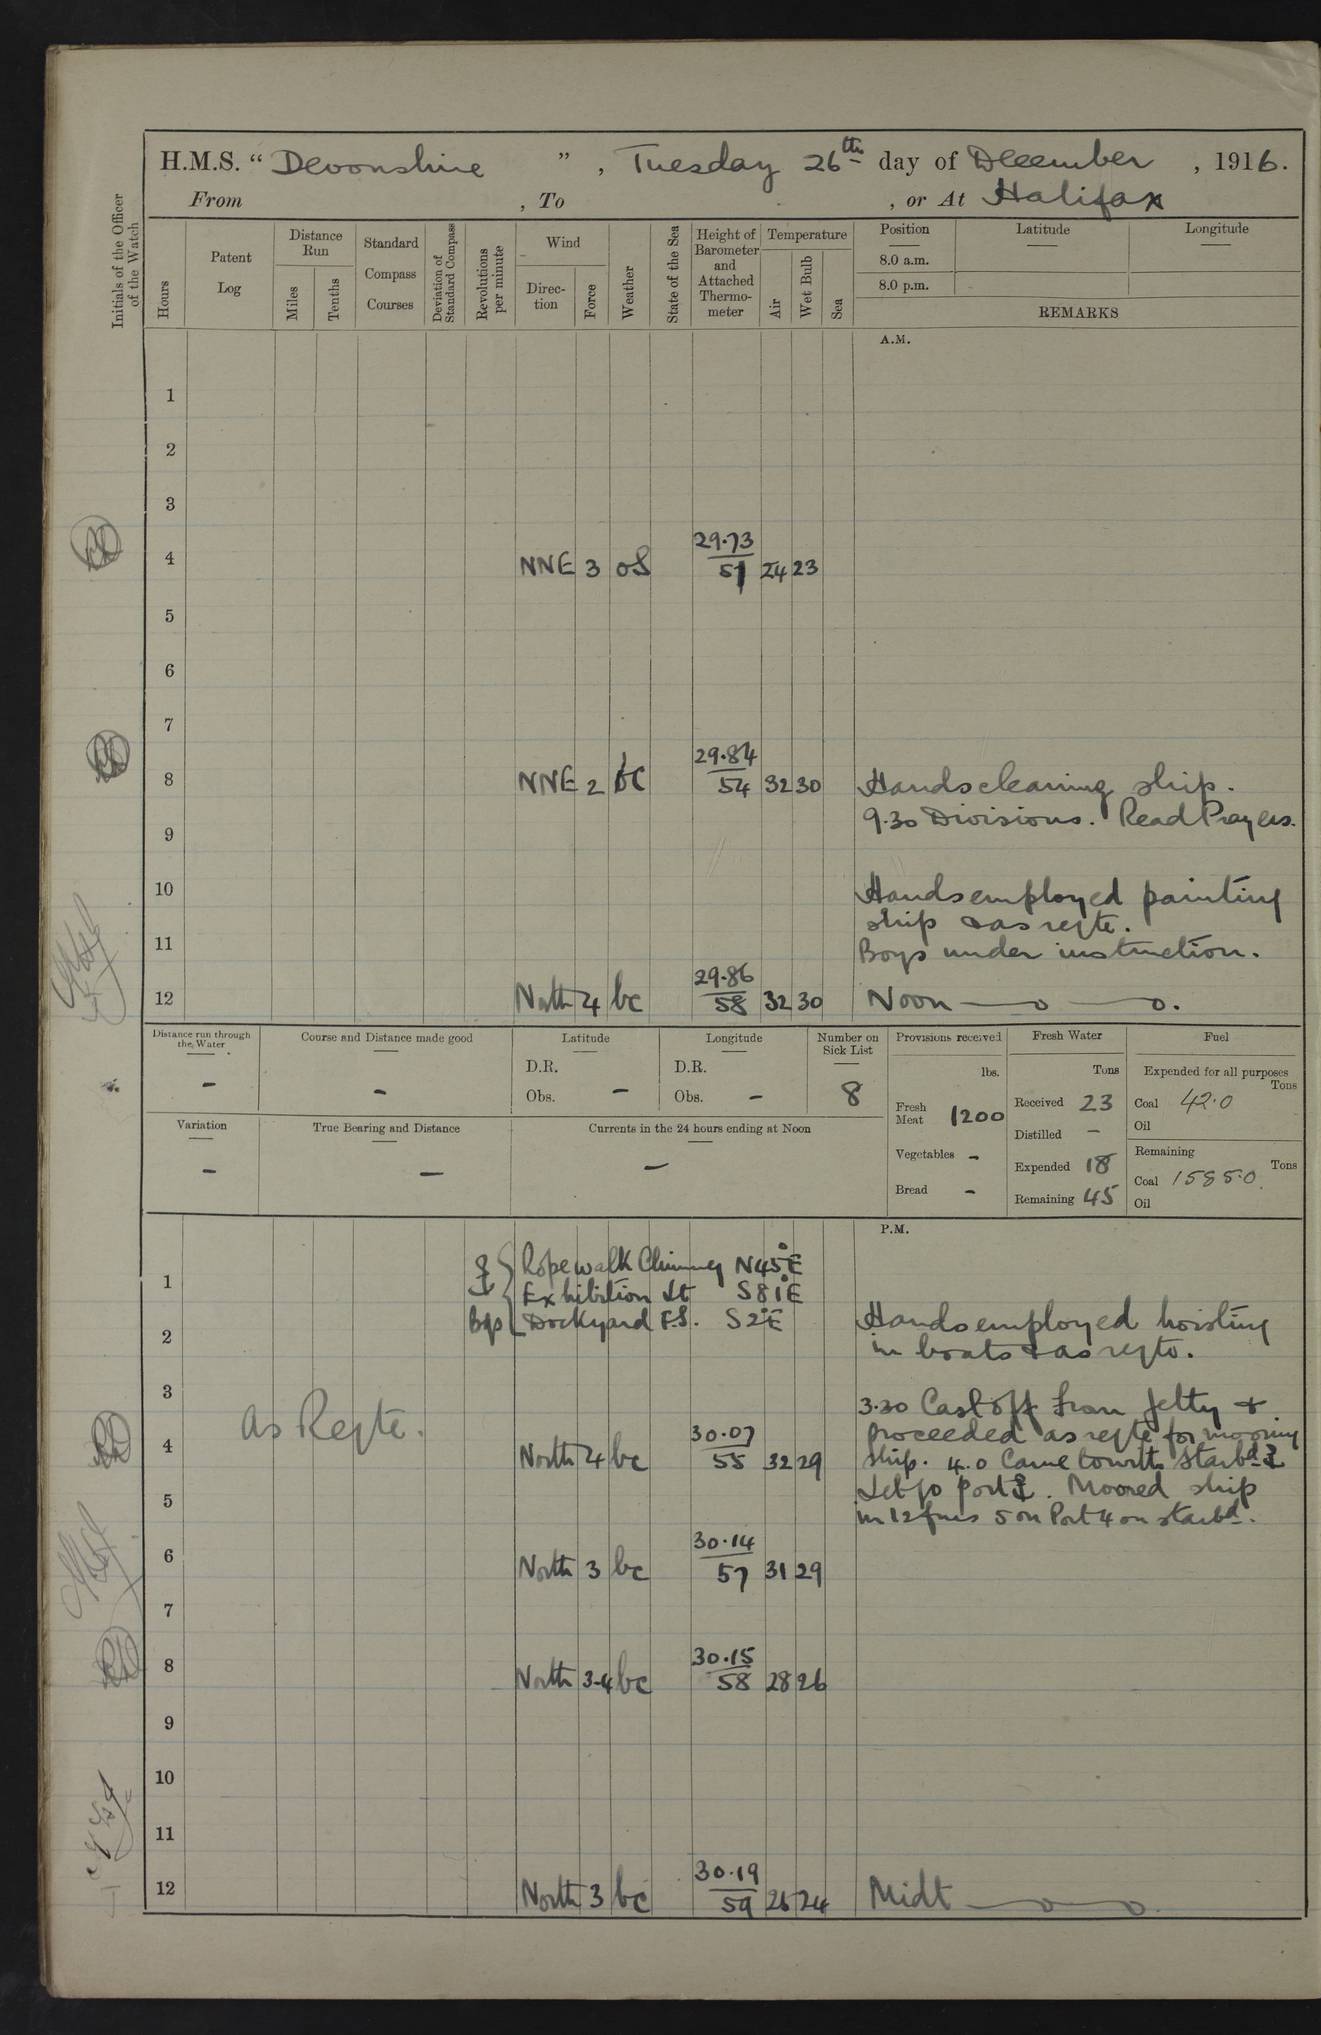 H.M.S. " Devonshire ", Tuesday 26th day of December, 1916.
From , To , or At Halifax
Initials of the Officer of the Watch
Hours
Patent Log
Distance Run
Miles
Tenths
Standard Compass Courses
Deviation of Standard Compass
Revolutions per minute
Wind
Direction
Force
Weather
State of the Sea
Height of Barometer and Attached Thermometer
Temperature
Air
Wet Bulb
Sea
Position Latitude Longitude
8.0 a.m.
8.0 p.m.
REMARKS
A.M.
1
2
3
4 NNE 3 os 29.73 51 24 23
5
6
7
8 NNE 2 bc 29.84 54 32 30 Hands cleaning ship.
9.30 Divisions. Read Prayers.
9
10 Hands employed painting
ship & as reqte.
11 Boys under instruction.
12 North 4 bc 29.86 58 32 30 Noon
Distance run through the Water
-
Course and Distance made good
-
Latitude
D.R.
Obs. -
Longitude
D.R.
Obs. -
Number on Sick List
8
Variation
-
True Bearing and Distance
-
Currents in the 24 hours ending at Noon
-
Provisions received
lbs.
Fresh Meat 1200
Vegetables -
Bread -
Fresh Water
Tons
Received 23
Distilled -
Expended 18
Remaining 45
Fuel
Expended for all purposes
Tons
Coal 42.0
Oil
Remaining
Tons
Coal 1585.0
Oil
P.M.
Ropewalk Chimney N45°E
1
Exhibition Lt S81°E
Bgs Dockyard F.S. S2°E
Hands employed hoisting
2
in boats & as reqte.
3
As Reqte.
3.30 Cast off from Jetty &
proceeded as reqte for mooring
4 North 4 bc 30.07 55 32 29
ship. 4.0 Came to with Starbd ⚓
Let go port ⚓. Moored ship
5
in 12 fms 5 on Port 4 on starbd.
6 North 3 bc 30.14 57 31 29
7
8 North 3-4 bc 30.15 58 28 26
9
10
11
12 North 3 bc 30.19 59 26 24 Midt